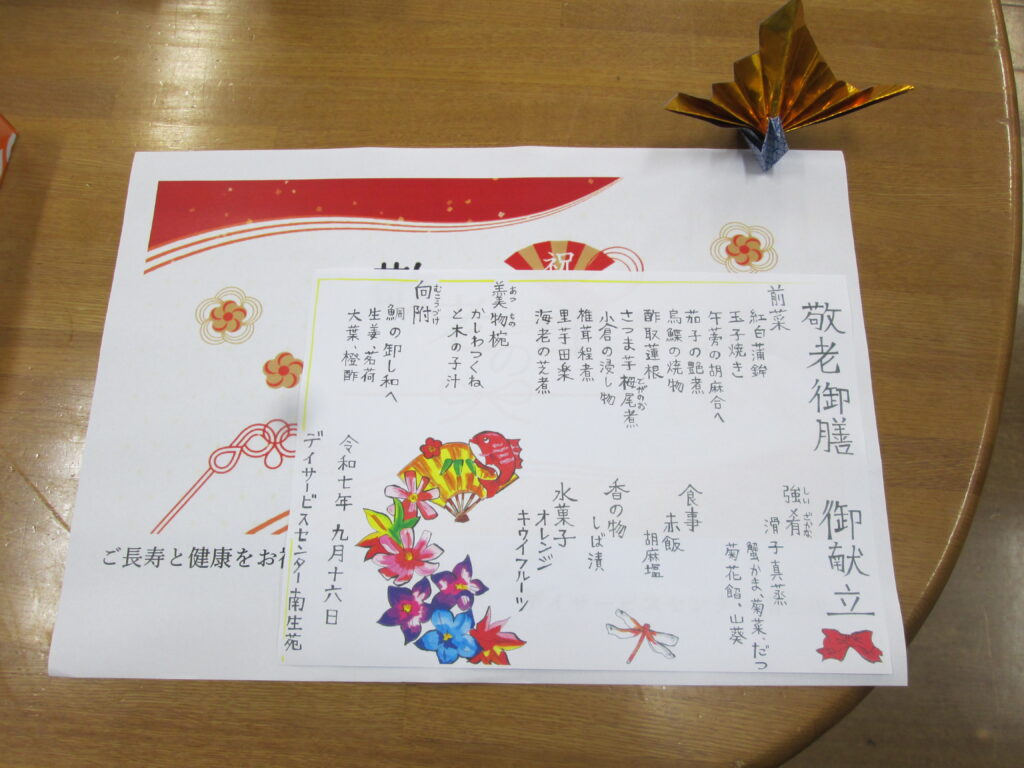 敬老御膳　御献立
前菜
紅白蒲鉾
玉子焼き
牛蒡の胡麻合へ
茄子の艶煮
烏鰈の焼物
酢取蓮根
さつま芋栂尾煮
とがのお
小倉の浸し物
椎茸程煮
里芋田楽
海老の芝煮
羹物椀
あつもの
かしわつくね
と木の子汁
向附
むこうづけ
鯛の卸し和へ
生姜、茗荷
大葉、橙酢
強肴
しいざかな
滑子真蒸
蟹かま、菊菜、だつ
菊花餡、山葵
食事
赤飯
胡麻塩
香の物
しば漬
水菓子
オレンジ
キウイフルーツ
令和七年　九月十六日
デイサービスセンター南生苑
祝
ご長寿と健康をお